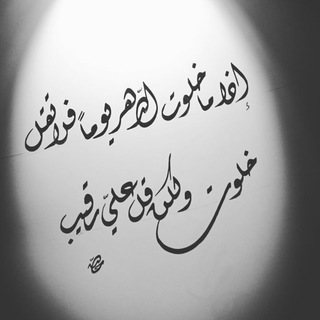 إذا ما خلوت الدّهر يوماً فلا تقل
خلوت ولكن قل عليّ رقيب